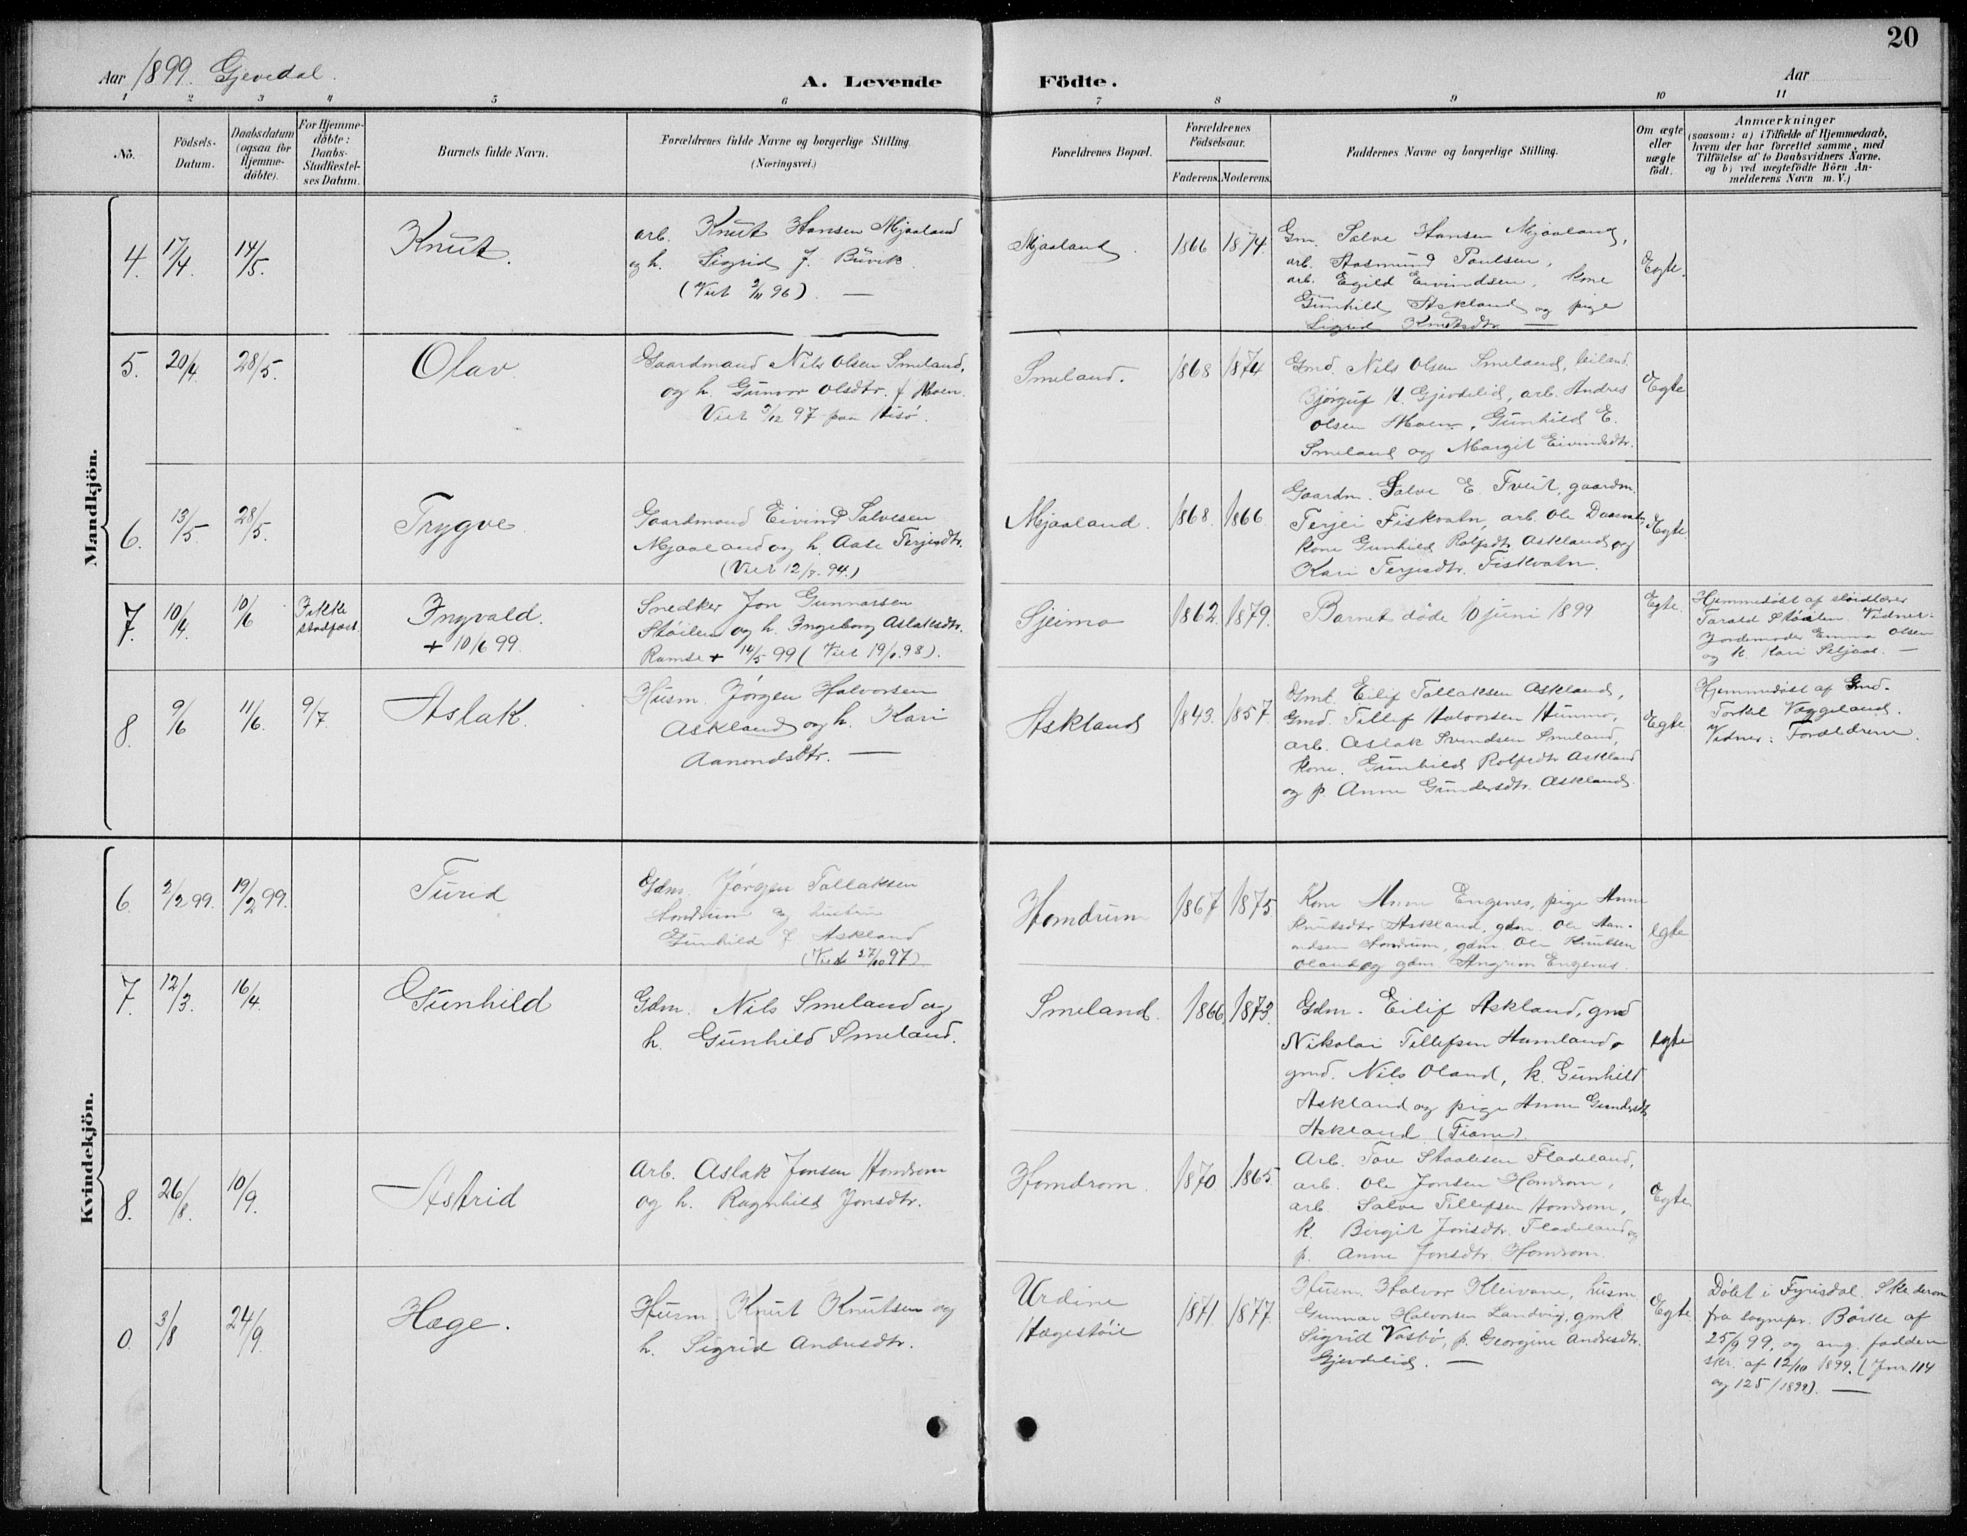 20
Aar 1899. Gjevedal.
A. Levende Födte.
Aar
1 2 3 4 5 6 7 8 9 10 11
No.
Födsels-
Datum.
Daabsdatum
(ogsaa for
Hjemme-
døbte).
For Hjemme-
døbte:
Daabs-
Stadfæstel-
ses Datum.
Barnets fulde Navn.
Forældrenes fulde Navne og borgerlige Stilling
(Næringsvei.)
Forældrenes Bopæl.
Forældrenes
Födselsaar.
Faderens. Moderens.
Faddernes Navne og borgerlige Stilling.
Om ægte
eller
uægte
födt.
Anmærkninger
(saasom: a) i Tilfælde af Hjemmedaab,
hvem der har forrettet samme, med
Tilföielse af to Daabsvidners Navne,
og b) ved uægtefödte Börn An-
melderens Navn m. V.)
Mandkjön.
4. 17/4 14/5. Knut.
arb. Knut Hansen Mjaaland
og h. Sigrid J. Büvik.
(Viet 2/11 96). —
Mjaaland. 1866 1874.
Gm. Salve Hansen Mjaaland,
arb. Aasmund Paulsen,
arb. Egild Eivindsen, kone
Gunhild Askland og pige
Sigrid Knutsdtr. —
Egte.
5. 20/4. 28/5. Olav.
Gaardmand Nils Olsen Smeland,
og h. Gunvor Olsdtr. f. Moen.
Viet 3/12 97 paa Hisö.
Smeland. 1868 1874
Gmd. Nils Olsen Smeland, leiland.
Bjørguf N. Gjevdelid, arb. Andres
Olsen Moen, Gunhild E.
Smeland og Margit Eivindsdtr.
Egte
6. 13/5. 28/5. Trygve
Gaardmand Eivind Salvesen
Mjaaland og h. Aase Terjesdtr.
(Viet 12/8. 94.)
Mjaaland. 1868. 1866
Gaardm. Salve E. Tveit, gaardm.
Terjei Fiskvatn, arb. Ole
kone Gunhild Rolfsdtr Askland og
Kari Terjesdtr. Fiskvatn.
Egte
7. 10/4. 10/6 Ikke
stadfæst. Ingvald.
+ 10/6 99.
Snedker Jon Gunnarsen
Støilen og h. Ingeborg Aslaksdtr.
Ramse + 14/5 99 (Viet 98).
Sjeimo 1862. 1879.
Barnet døde 10 juni 1899
Egte.
Hjemmedøbt af sløidlærer
Tarald Støilen. Vidner:
Jordmoder Emma Olsen
og k. Kari Seljaas. —
8. 9/6 11/6. 9/7 Aslak.
Husm. Jørgen Halvorsen
Askland og h. Kari
Aanondsdtr. —
Askland 1843. 1857.
Gmd. Eilif Tallaksen Askland,
Gmd. Tellef Halvorsen Hunmo,
arb. Aslak Svendsen Smeland,
kone. Gunhild Rolfsdtr Askland
og p. Anne Gundersdtr. Askland.
Egte
Hjemmedøbt af Gmd.
Torkel Væggeland.
Vidner: Forældrene.
Kvindekjön.
6. 2/2 99. 19/2 99. Turid
Gdm. Jørgen Tallaksen
Homdrum og hustru
Gunhild f. Askland
(Viet 27/10 97)
Homdrum 1867 1875
Kone Anne Engenes, pige Anne
Knutsdtr Askland, gdm. Ole Aan-
ondsen Homdrum, gdm. Ole Knutsen
Oland og gdm. Angrim Engenes.
egte
7. 12/3. 16/4. Gunhild
Gdm. Nils Smeland og
h. Gunhild Smeland.
Smeland. 1866 1873.
Gdm. Eilif Askland, gmd
Nikolai Tellefsen Hamland,
gmd. Nils Oland, k. Gunhild
Askland og pige Anne Gundersdtr
Askland (Tiane).
egte
8. 26/8. 10/9. Astrid
Arb. Aslak Jonsen Homdrom
og h. Ragnhild Jonsdtr.
Homdrom. 1870 1865
Arb. Tore Staalesen Fladeland,
arb. Ole Jonsen Homdrom,
arb. Salve Tellefsen Homdrom,
k. Birgit Jonsdtr. Fladeland og
p. Anne Jonsdtr. Homdrom.
Egte
0 3/8 24/9. Hæge.
Husm. Knut Knutsen og
h. Sigrid Andresdtr.
Urdine
Hægestöil
1871. 1877.
Husm. Halvor Kleivane, husm
Gunnar Halvorsen Landvig, gmk
Sigrid Vasbø, p. Georgine Andresdtr.
Gjevdelid. —
Egte
Døbt i Fyrisdal. Skr derom
fra sognepr. Börke af
25/9 99, og ang. faddere
skr. af 12/10 1899. (Jnr. 114
og 125/1899). —